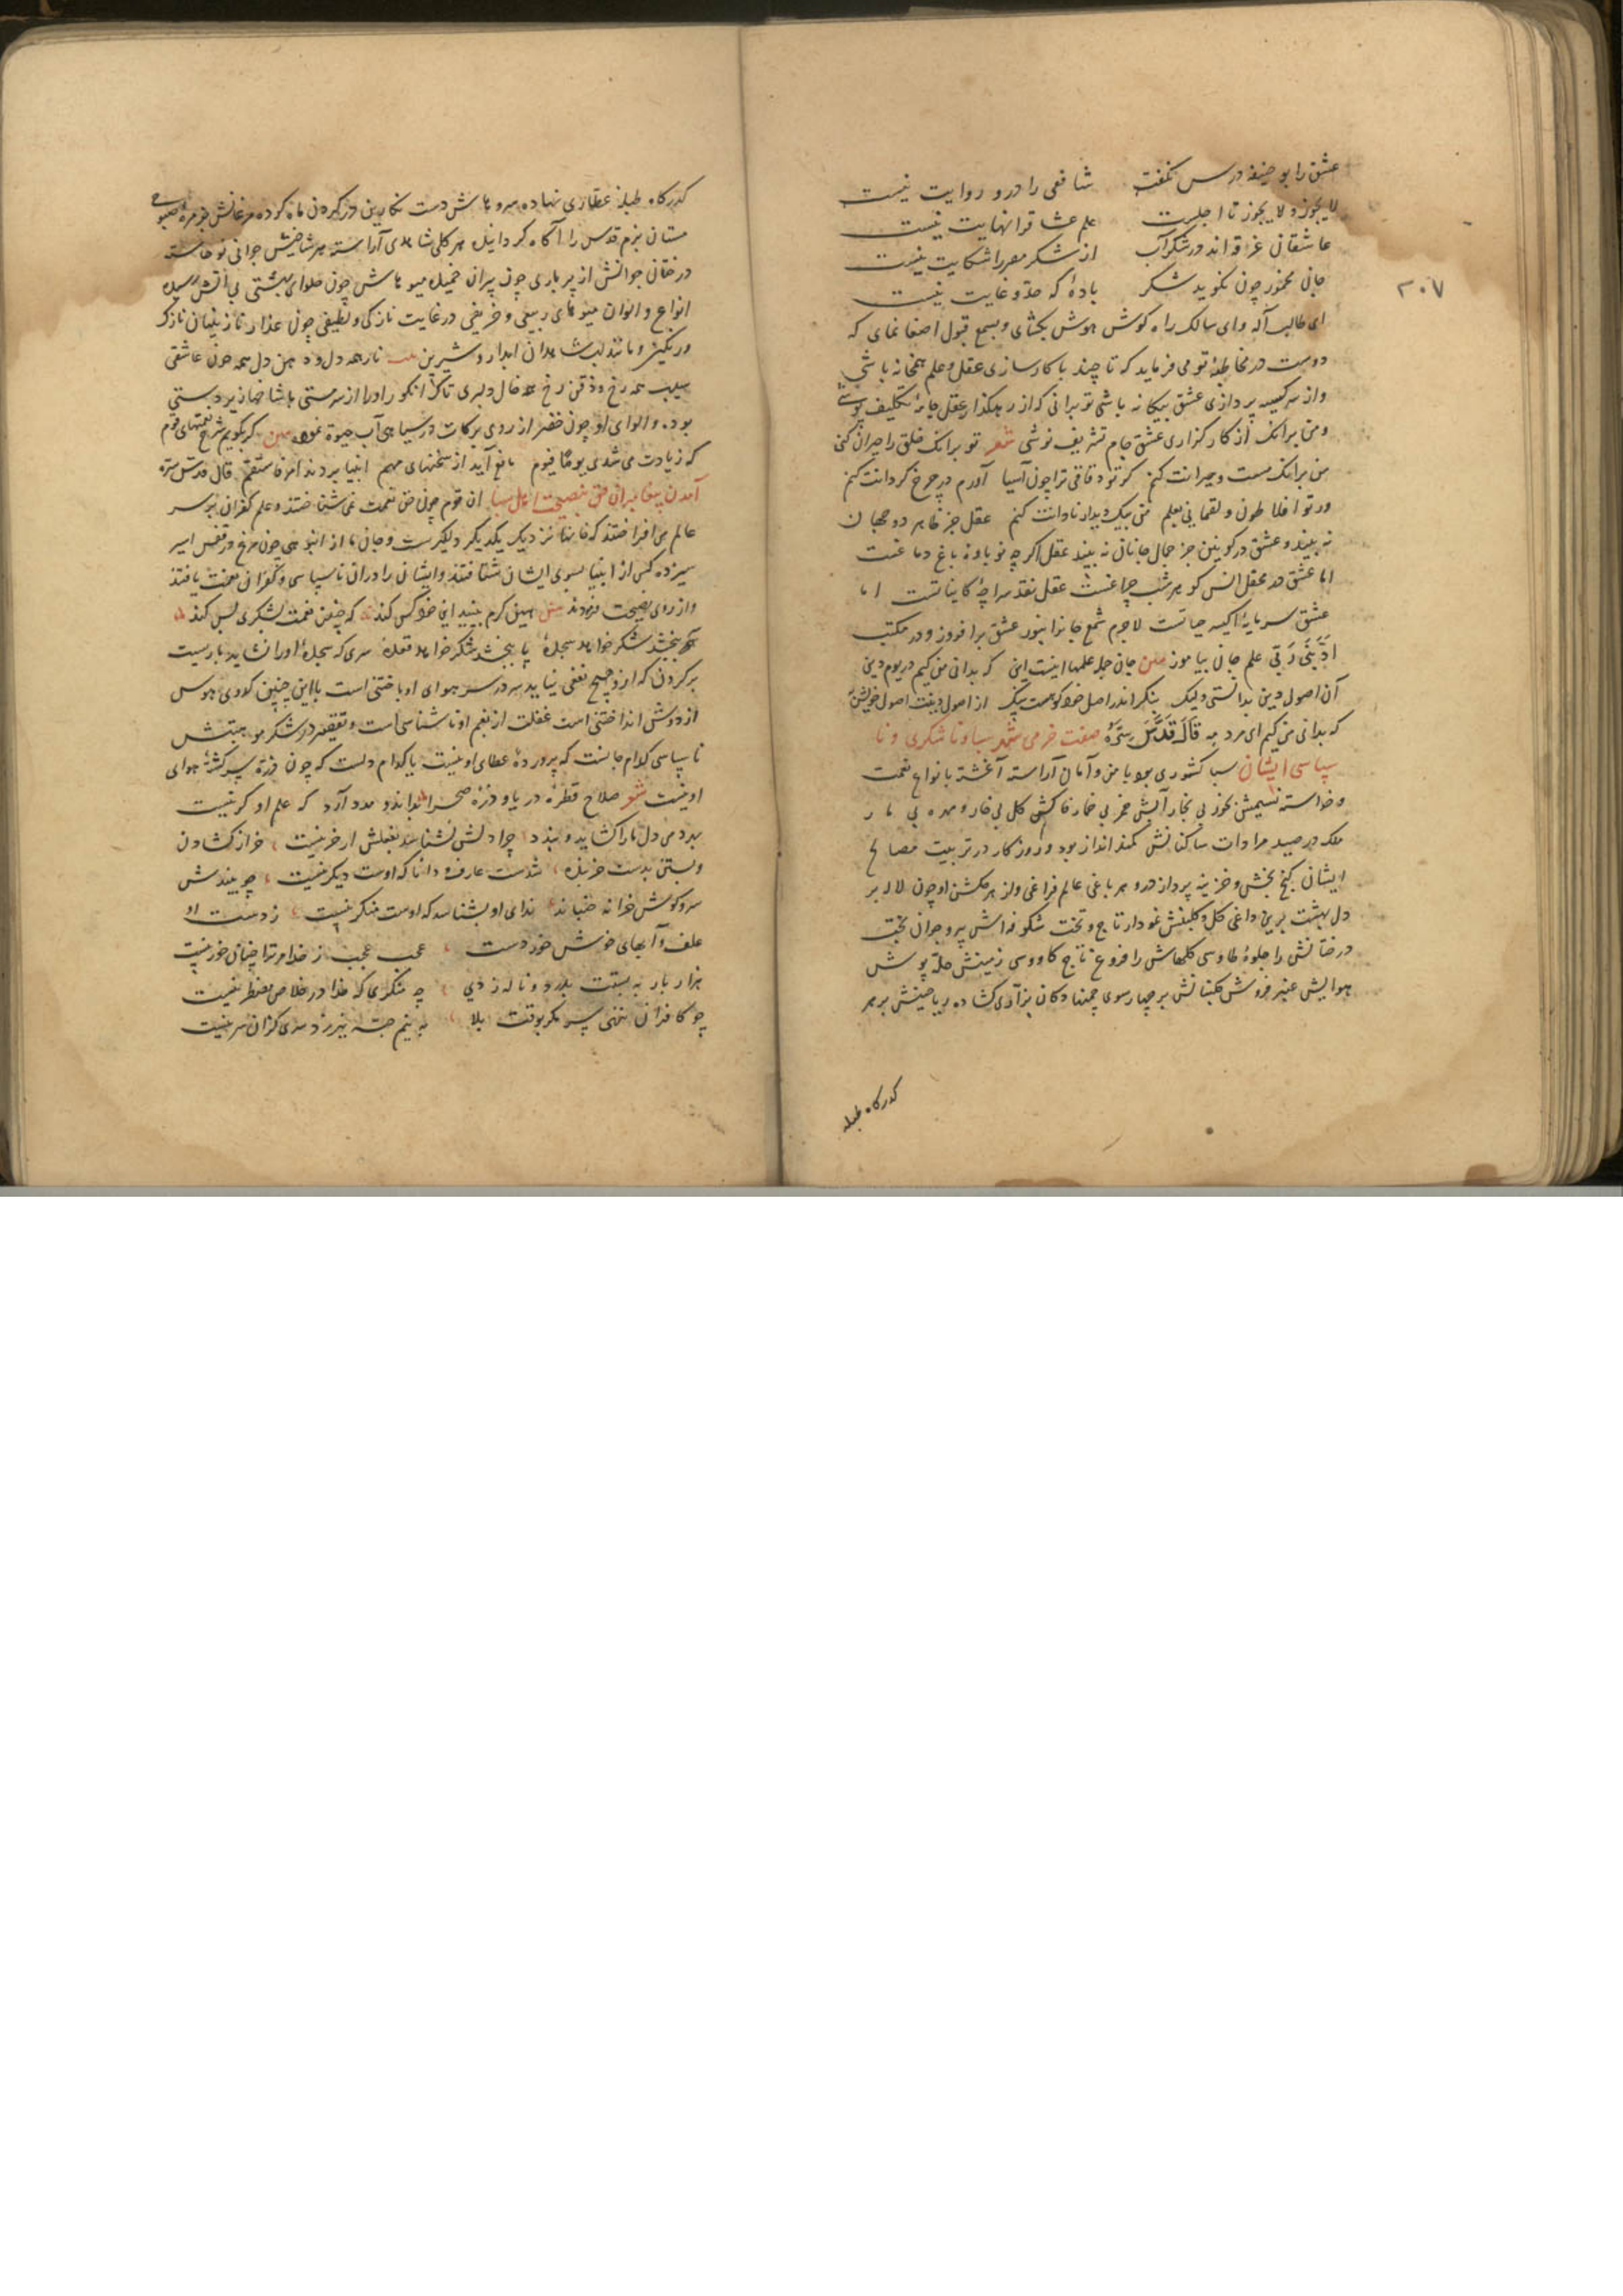 عشق را بو حنیفه درس نگفت شافعی را درو روایت نیست
لا یجوز و لا یجوز تا اجلست علم عشاق را نهایت نیست
عاشقان غرقه اند در شکرآب از شکر مصر را شکایت نیست
جان مخمور چون نگوید شکر بادهٔ که حد و غایت نیست
ای طالب آله وای سالک راه کوش هوش بکشای و بسمع قبول اصغا نمای که
دوست در مخاطبهٔ تو می فرماید که تا چند با کارسازی عقل و علم همخانه باشی
واز سر کیسه پردازی عشق بیکانه باشی تو برانی که از رهکذار عقل جامهٔ تکلیف پوشی
ومن برانک از کار کزاری عشق جام تشریف نوشی شعر تو برانک خلق را حیران کنی
من برانک مست و حیرانت کنم کر تو کوه قافی ترا چون آسیا آورم در چرخ کردانت کنم
ور تو افلاطون و لقمانی بعلم من بیک دیدار نادانت کنم عقل جز ظاهر دو جهان
نه بیند و عشق در کونین جز جمال جانان نه بیند عقل اکرچه نوباوهٔ باغ دماغست
اما عشق در محفل انس کوهر شب چراغست عقل نقد سراچهٔ کایناتست اما
عشق سرمایهٔ اکسیر حیاتست لاجرم شمع جانرا بنور عشق برافروز و در مکتب
ادبنی ربی علم جان بیاموز مثنوی جان جمله علمها اینست این که بدانی من کیم در یوم دین
آن اصول دین بدانستی ولیک بنکر اندر اصل خود کو هست نیک از اصولینت اصول خویش به
که بدانی من کیم ای مرد مه قال قدس سره صفت خرمی شهر سبا و ناشکری و نا
سپاسی ایشان سبا کشوری بود با من و آمان آراسته آغشته بانواع نعمت
وخواسته نسیمش بخور بی بخار آبش خمر بی خمار خاکش کل بی خار و مهره بی مار
ملک در صید مرادات ساکنانش کمند انداز بود و روزکار در تربیت مصالح
ایشان کنج بخشی و خزینه پرداز درو هر باغی عالم فراغی ولز هر کلشن او چون لاله بر
دل بهشت برین داغی کل و کلبنش نمودار تاج و تخت شکوفه اش پیر و جوان بخت
درختانش را جلوهٔ طاوسی کلهاش را فروغ تاج کاووسی زمینش حله پوش
هوایش عنبر فروش بر چهار سوی چمنها دکان بزازی کشاده ریاحینش بر هر
کذرکاه طبله
۲۰۷
کذرکاه طبلهٔ عطاری نهاده سروهاش دست نکارین در کردن ماه کرده مرغانش بزمزمهٔ صبوحی
مستان بزم قدس را آکاه کردانیده هر کلی شاهدی آراسته هر شاخش جوانی نوخاسته
درختان جوانش از پر باری چون پیران خمیده میوهاش چون حلوای بهشتی بی آتش رسیده
انواع و الوان میوهای ربیعی و خریفی در غایت نازکی و لطیفی چون عذار نازنینان نازک
ورنکین و مانند لب شاهدان آبدار و شیرین نار همه دل و دهن دل همه خون عاشقی
سیب همه رخ و ذقن رخ همه خال دلبری تاک انکور را از سرمستی با شاخها زبردستی
بود و الوای او چون خضر از روی برکات در سیاهی آب حیوة نموده کر بکویم شرح نعمتهای قوم
که زیادت می شدی یوما فیوم مانع آید از سخنهای مهم انبیا بردند امر فاستقم قال قدس سره
آمدن پیغامبران حق بنصیحت اهل سبا ان قوم چون حق نعمت نمی شناختند و علم کفران بر سر
عالم می افراختند که خانها نزدیک یکدیکر دلکیرست و جان ما از انبوهی چون مرغ در قفس اسیر
سیزده کس از انبیا بسوی ایشان شتافتند و ایشان را دران ناسپاسی و کفران نعمت یافتند
واز روی نصیحت فرمودند هین کرم بینید این خود کس کند که چنین نعمت بشکری بس کند
سر ببخشد شکر خواهد سجدهٔ پا ببخشد شکر خواهد قعدهٔ سری که سجدهٔ او را نشاید باریست
بر کردن که ازو هیچ نفعی نیاید سر در سر هوای او باختنی است با این چنین کدوی هوس
از دوش انداختنی است غفلت از نعم او ناشناسی است و تقصیر در شکر موهبتش
ناسپاسی کدام جانست که پروردهٔ عطای او نیست یا کدام دلست که چون ذره سرکشتهٔ هوای
او نیست شعر صلاح قطرهٔ دریا و ذره صحرا بداند و مدد آرد که علم او کر نیست
بدو می دل ما را کشاید و بندد چرا دلش نشناسد بفعلش ار خر نیست خر از کشادن
وبستن بدست خربنده شدست عارف و داند که اوست دیکر نیست چو بیندش
سر و کوش خرانه جنباند ندای او بشناسد که اوست منکر نیست ز دست او
علف و آبهای خوش خوردست عجب عجب ز خدا مر ترا چنان خور نیست
هزار بار به بستت بدرد و ناله زدی چه منکری که خدا در خلاص مضطر نیست
چو کافران ننهی سر مکر بوقت بلا به نیم حبه نیرزد سری کزان سر نیست